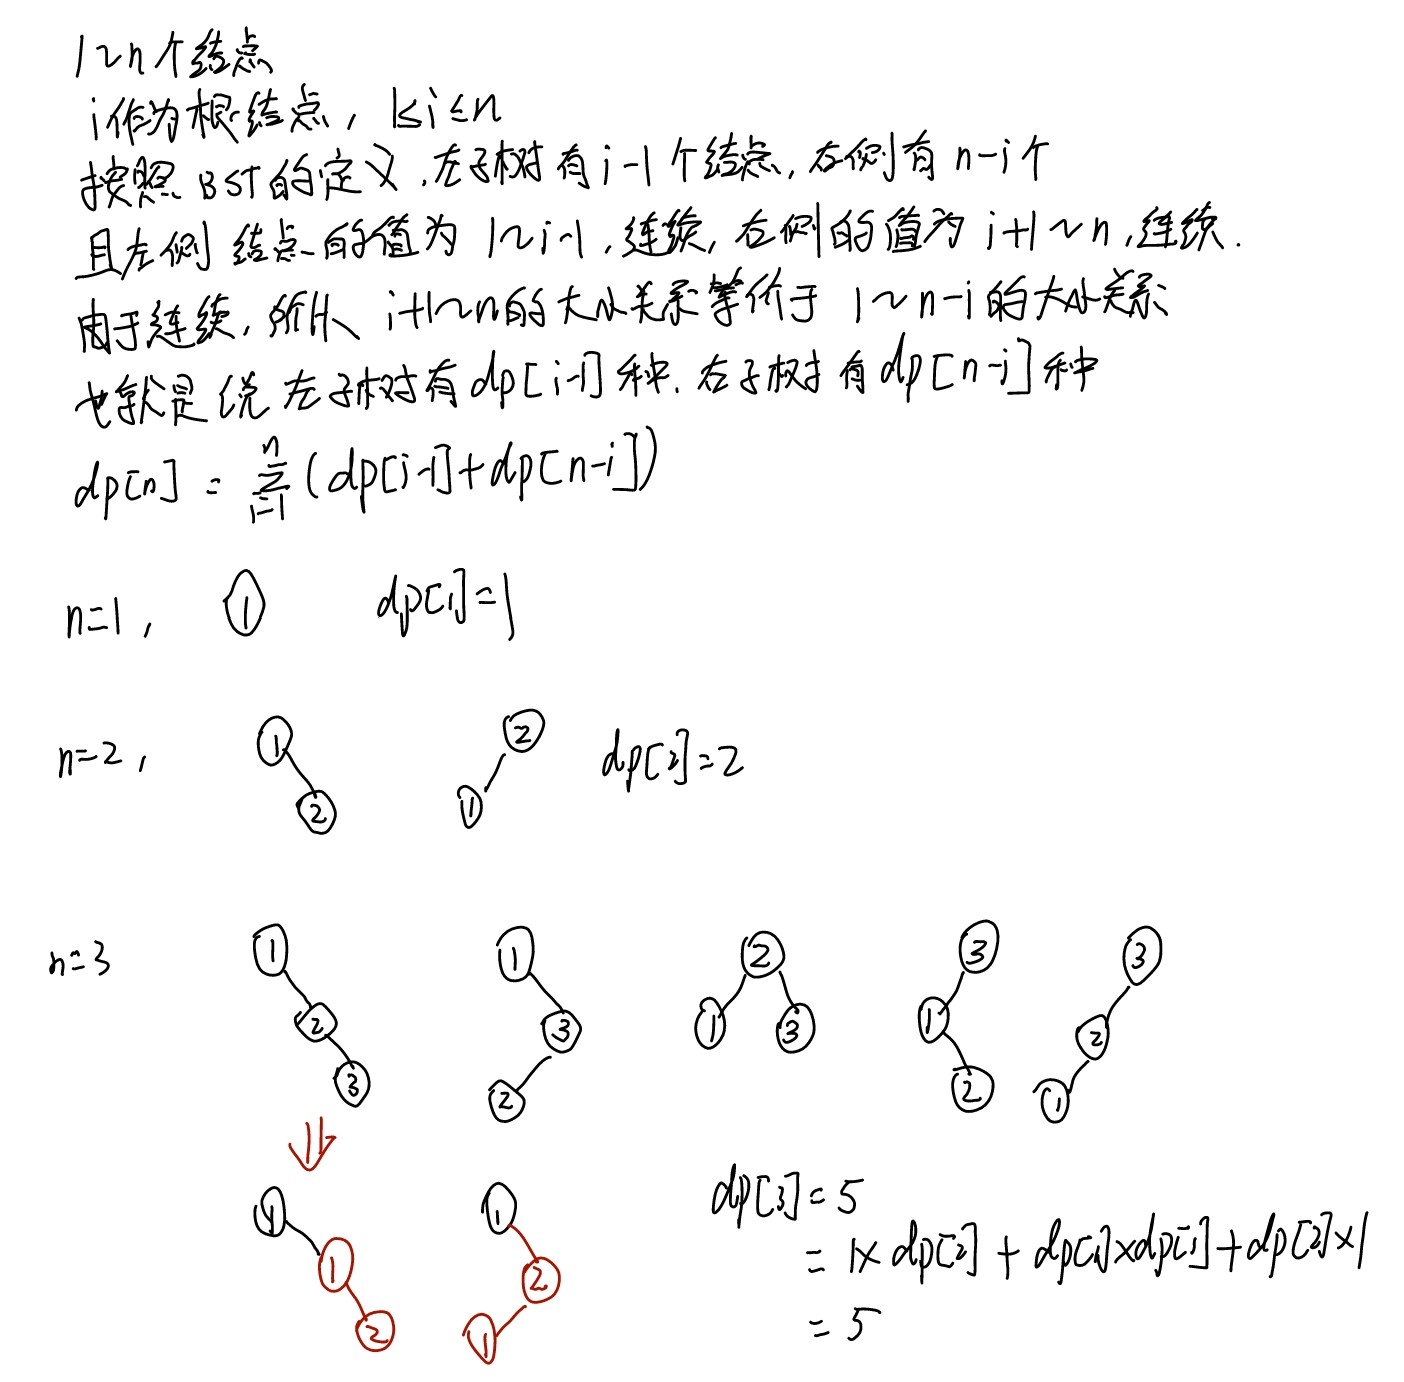 1~n个结点
i作为根结点, 1≤i≤n
按照BST的定义,左子树有i-1个结点,右侧有n-i个
且左侧结点的值为1~i-1,连续,右侧的值为i+1~n,连续.
由于连续,所以i+1~n的大小关系等价于1~n-i的大小关系
也就是说左子树有dp[i-1]种.右子树有dp[n-i]种
dp[n] = ∑_{i=1}^{n} (dp[i-1]+dp[n-i])
n=1, 1 dp[1]=1
n=2, 1 2 2 1 dp[2]=2
n=3 1 2 3 1 3 2 2 1 3 3 1 2 3 2 1
1 1 2 1 2 1
dp[3]=5
= 1×dp[2] + dp[1]×dp[1]+dp[2]×1
= 5